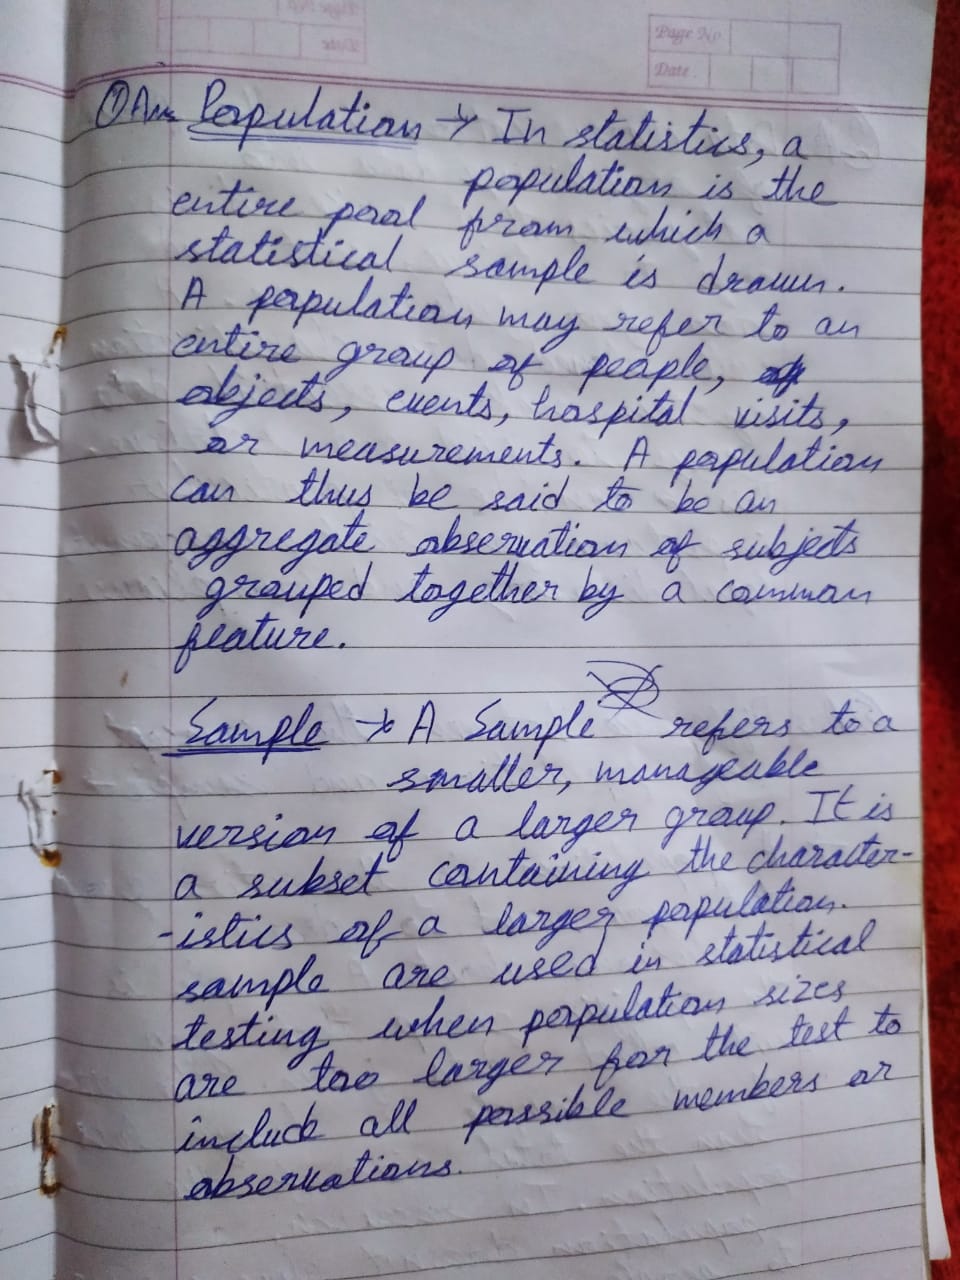 Page No
Date
① Ans Population → In statistics, a
population is the
entire pool from which a
statistical sample is drawn.
A population may refer to an
entire group of people,
objects, events, hospital visits,
or measurements. A population
can thus be said to be an
aggregate observation of subjects
grouped together by a common
feature.
Sample → A Sample refers to a
smaller, manageable
version of a larger group. It is
a subset containing the character-
-istics of a larger population.
sample are used in statistical
testing when population sizes
are too larger for the test to
include all possible members or
observations.